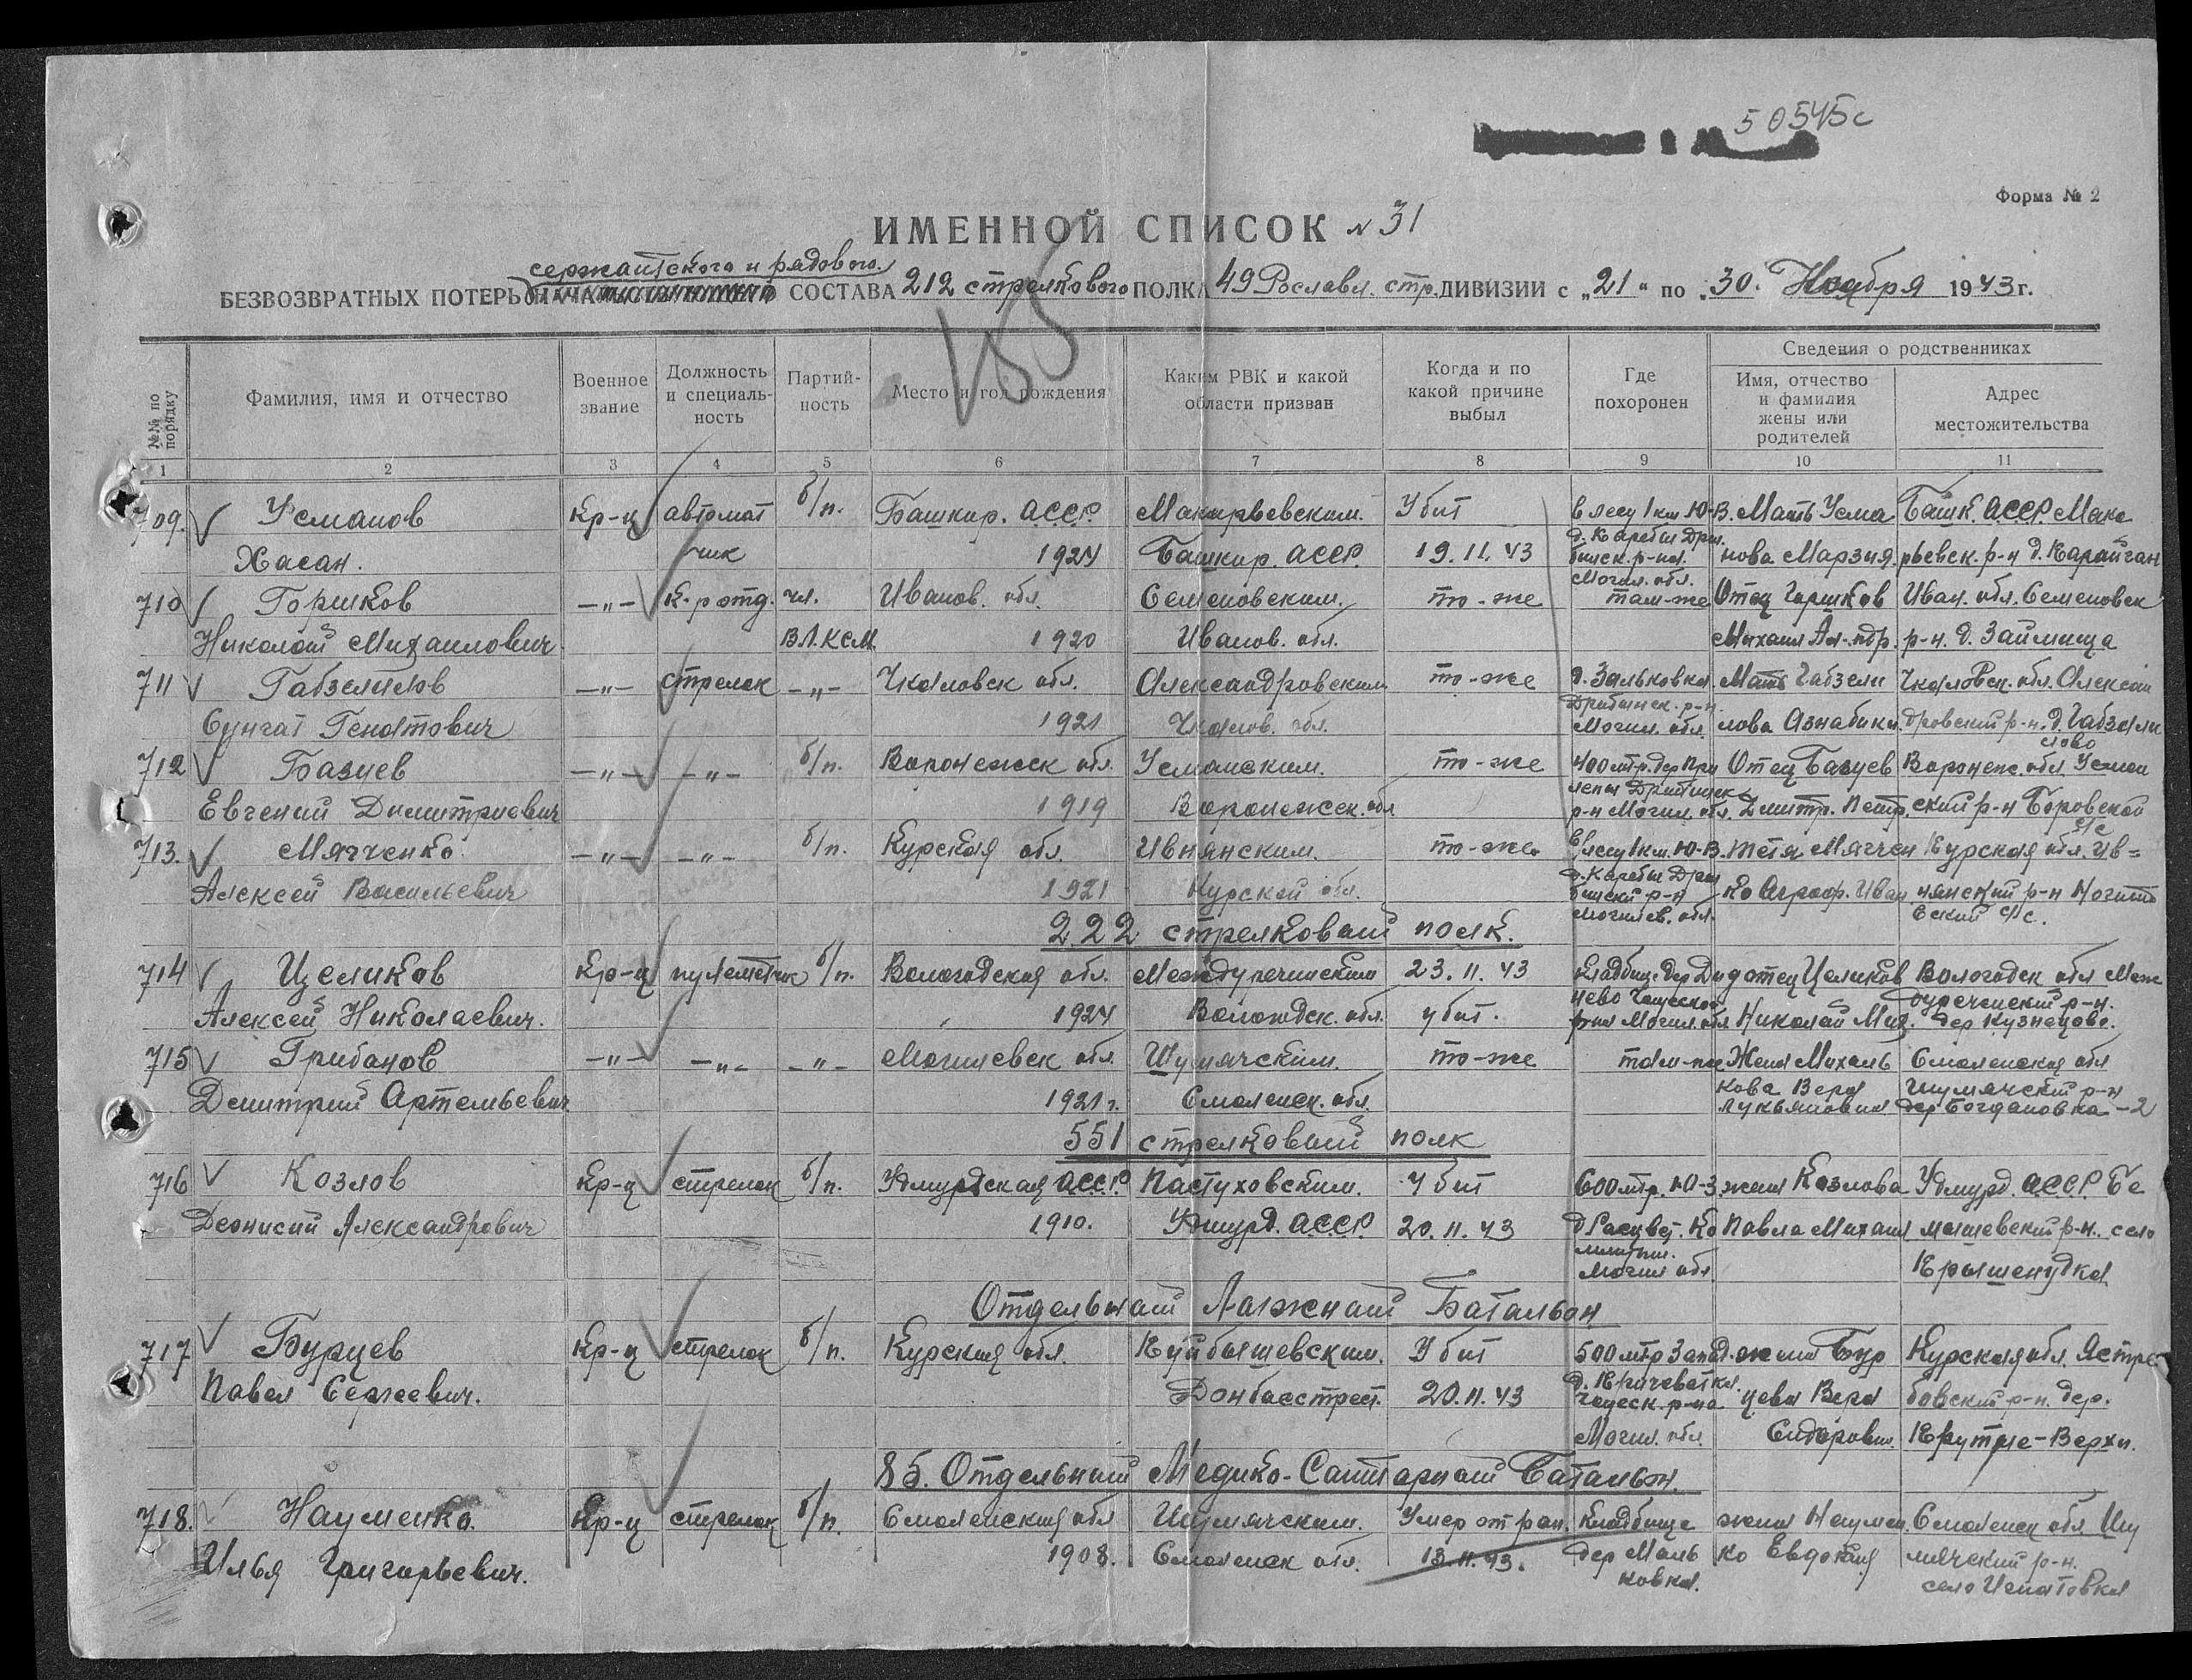 50545с
Форма № 2
ИМЕННОЙ СПИСОК N 31
сержантского и рядового
БЕЗВОЗВРАТНЫХ ПОТЕРЬ СОСТАВА 212 стрелкового ПОЛКА 49 Рославл. стр. ДИВИЗИИ с „21“ по „30. Ноября 1943 г.
№№ по порядку
Фамилия, имя и отчество
Военное звание
Должность и специальность
Партийность
Место и год рождения
Каким РВК и какой области призван
Когда и по какой причине выбыл
Где похоронен
Сведения о родственниках
Имя, отчество и фамилия жены или родителей
Адрес местожительства
1 2 3 4 5 6 7 8 9 10 11
709. Усманов Кр-ц автомат б/п. Башкир. АССР. Макарьевским. Убит в лесу 1 км Ю-В. Мать Усма Башк. АССР. Мака
Хасан. чик 1924 Башкир. АССР. 19.11.43 д. Каребы Дри бинск. р-на. Могил. обл. нова Марзия рьевск. р-н д.
710 Горшков —„— к-р отд. чл. Иванов. обл. Семеновским. то-же там-же Отец Горшков Иван. обл. Семеновск
Николай Михаилович ВЛКСМ. 1920 Иванов. обл. Михаил Ал-ндр. р-н. д. Займища
711 Габзелилов —„— стрелок —„— Чкаловск обл. Александровским то-же Мать Габзели Чкаловск. обл. Алексан
Сунгат Генатович 1921 Чкалов. обл. Дрибинск. р-н. Могил. обл. лова дровский р-н. д. Габзали лово
712 Базиев —„— —„— б/п. Воронежск обл. Усманским. то-же 400 мтр. дер При Отец Базуев Воронеж. обл. Усман
Евгений Димитриевич 1919 Воронежск. обл р-н Могил. обл. Дмитр. Петр. ский р-н Боровской с/с
713. Мягченко —„— —„— б/п. Курская обл. Ивнянским. то-же В лесу 1 км. Ю-В. тетя Мягчен Курская обл. Ив=
Алексей Васильевич 1921 Курской обл. д. Каребы Дри бинский р-н Могилев. обл. ко Аграф. Иван нянский р-н
222 стрелковый полк.
714 Целиков Кр-ц пулеметчик б/п. Вологодская обл. Междуречинским 23.11.43 Кладбище дер Ди отец Целиков Вологодск обл Меж
Алексей Николаевич. 1924 Вологодск. обл. убит. р-на Могил. обл Николай Мих. дуреченский р-н. дер Кузнецово.
715 Грибанов —„— —„— —„— Могилевск обл. Шумячским. то-же там-же Жена Михаль Смоленская обл
Димитрий Артемьевич 1921 г. Смоленск. обл. кова Вера Лукьяновна Шумячский р-н дер Богдановка-2
551 стрелковый полк
716 Козлов Кр-ц стрелок б/п. Удмуртская АССР. Пастуховским. Убит 600 мтр. Ю-З жена Козлова Удмурд. АССР. Бе
Деонисий Александрович 1910. Удмурд. АССР. 20.11.43 Могил обл. Павла Михаил р-н. село
Отдельный Лыжный Батальон
717 Бурцев Кр-ц стрелок б/п. Курская обл. Куйбышевским. Убит 500 мтр Запад. жена Бур Курская обл. Ястре
Павел Сергеевич. Донбасстрест. 20.11.43 д. Кричеватка. Чаусск. р-на цева Вера бовский р-н. дер.
Могил. обл. Сидоровн. Крутые-Верхи.
85. Отдельный Медико-Санитарный Батальон.
718. Науменко. Кр-ц стрелок б/п. Смоленская обл Шумячским. Умер от ран. Кладбище жена Наумен Смоленск обл. Шу
Илья Григорьевич. 1908. Смоленск обл. 13.11.43. дер Маль ковка. ко Евдокия мячский р-н.